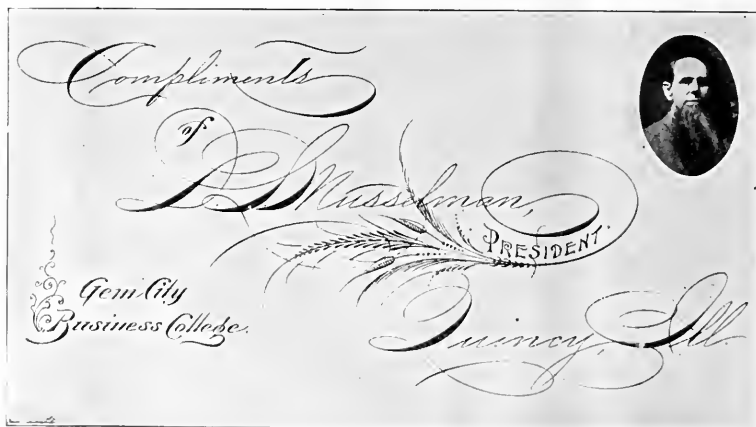 Compliments
of
D. L. Musselman,
PRESIDENT.
Gem City
Business College.
Quincy, Ill.